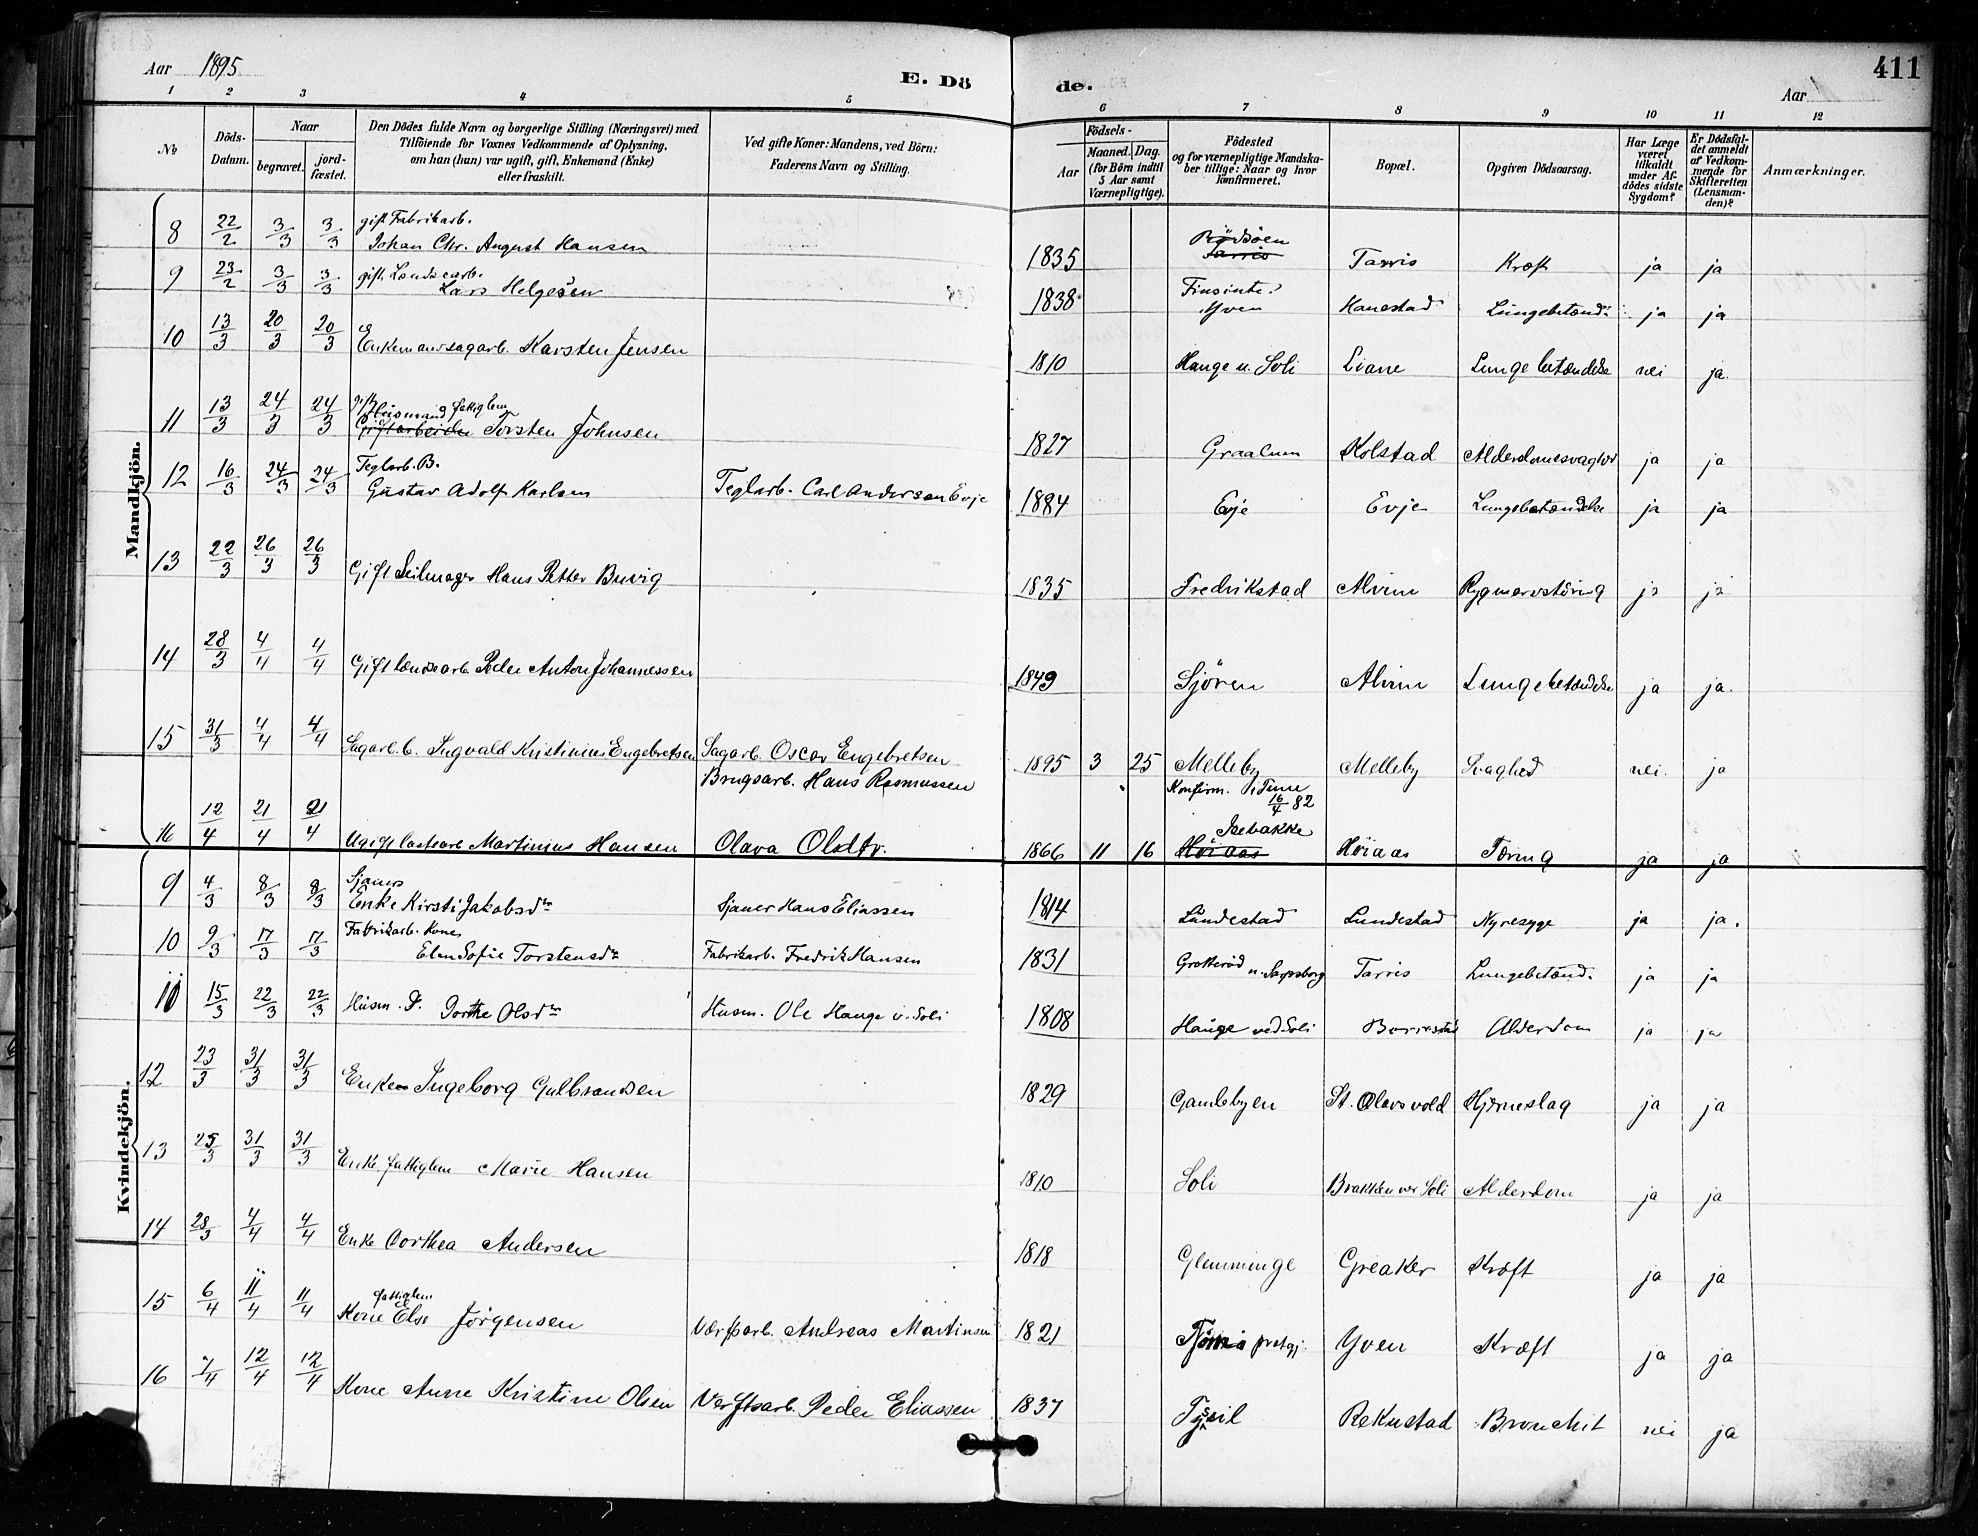 Aar 1895
E. Dö
de.
Aar
411
1 2 3 4 5 6 7 8 9 10 11 12
No
Döds-Datum.
Naar
begravet.
jord-fæstet.
Den Dödes fulde Navn og borgerlige Stilling (Næringsvei) med
Tilföiende for Voxnes Vedkommende af Oplysning,
om han (hun) var ugift, gift, Enkemand (Enke)
eller fraskilt.
Ved gifte Koner: Mandens, ved Börn:
Faderens Navn og Stilling.
Födsels-
Aar
Maaned. Dag.
(for Börn indtil
5 Aar samt
Værnepligtige).
Födested
og for værnepligtige Mandska-
ber tillige: Naar og hvor
konfirmeret.
Bopæl.
Opgiven Dödsaarsag.
Har Læge
været
tilkaldt
under Af-
dödes sidste
Sygdom?
Er Dödsfal-
det anmeldt
af Vedkom-
mende for
Skifteretten
(Lensman-
den)?
Anmærkninger.
Mandkjön.
8 22/2 3/3 3/3 gift Fabrikarb. Johan Chr. August Hansen 1835 Tarris Kræft ja ja
9 23/2 3/3 3/3 gift Landsearb. Lars Helgesen 1838 Yven Hanestad Lungebetænd: ja ja
10 13/3 20/3 20/3 Enkemand sagarb. Karsten Jensen 1810 Hauge v. Soli Liane Lungebetændelse nei ja.
11 13/3 24/3 24/3 gift Husmand fattiglem Giftarbeider Torsten Johnsen 1827 Graalum Kolstad Alderdomssvaghed ja ja
12 16/3 24/3 24/3 Teglarb. B. Gustav Adolf Karlsen Teglarb. Carl Andersen Evje 1884 Evje Evje Lungebetændelse ja ja
13 22/3 26/3 26/3 Gift Seilmager Hans Petter Buvig 1835 Fredrikstad Alvim Rygmarvstæring ja ja
14 28/3 4/4 4/4 Gift landsearb. Peder Anton Johannessen 1849 Sjøren Alvim Lungebetændelse ja ja.
15 31/3 4/4 4/4 Sagarb. b. Ingvald Kristinius Engebretsen Sagarb. Oscar Engebretsen 1895 3 25 Melleby Melleby Svaghed nei. ja
16 12/4 21/4 21/4 Ugift lastearb Martinius Hansen Brugsarb. Hans Rasmussen Olava Olsdtr. 1866 11 16 Konfirm. i Tune 16/4 82 Isebakke Høiaas Høiaas Tæring ja ja
Kvindekjön.
9 4/3 8/3 8/3 Sjauers Enke Kirsti Jakobsdr Sjauer Hans Eliassen 1814 Lundestad Lundestad Nyresyge ja ja.
10 9/3 17/3 17/3 Fabrikarb. Kone Elen Sofie Torstensdr Fabrikarb. Fredrik Hansen 1831 Grotterød v. Sarpsborg Tarris Lungebetænd. ja ja
11 15/3 22/3 22/3 Husm. D. Dorthe Olsdr Husm. Ole Hauge v. Soli 1808 Hauge ved Soli Borrestad Alderdom ja ja
12 23/3 31/3 31/3 Enke Ingeborg Gulbrandsen 1829 Gamlebyen St. Olavs vold Hjerneslag ja ja
13 25/3 31/3 31/3 Enke fattiglem Marie Hansen 1810 Soli Brakken ved Soli Alderdom ja ja
14 28/3 4/4 4/4 Enke Dorthea Andersen 1818 Glemminge Greaker Kræft ja ja
15 6/4 11/4 11/4 fattiglem Kone Else Jørgensen Værftsarb. Andreas Martinsen 1821 prstgj. Yven Kræft ja ja
16 7/4 12/4 12/4 Kone Anne Kristine Olsen Verftsarb. Peder Eliassen 1837 Rekustad Bronchit nei ja